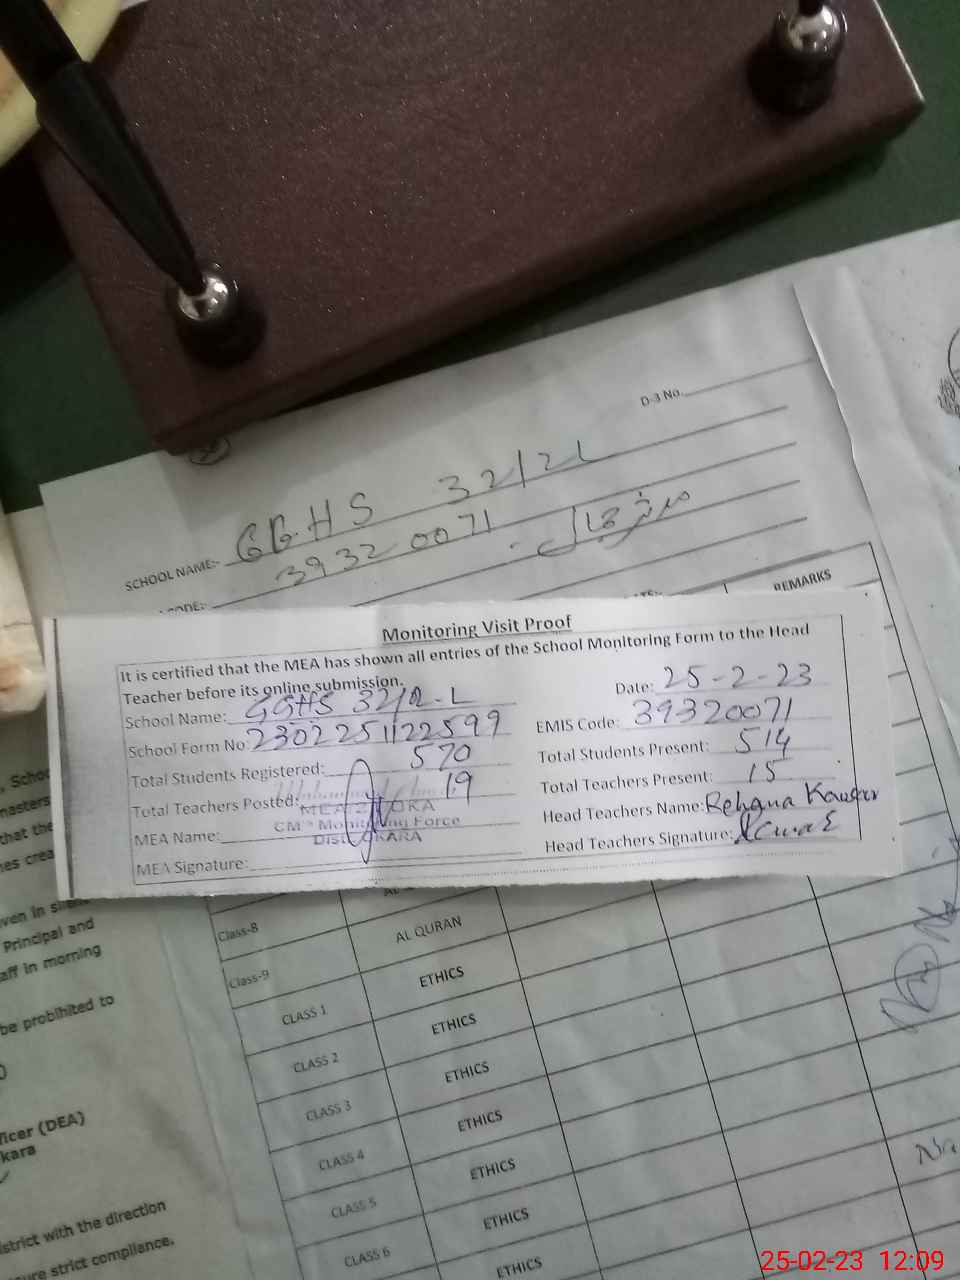 D-3 No.
SCHOOL NAME:- GGHS 32/2L
39320071
REMARKS
Monitoring Visit Proof
It is certified that the MEA has shown all entries of the School Monitoring Form to the Head
Teacher before its online submission.
Date: 25-2-23
School Name: GGHS 32/2-L
EMIS Code: 39320071
School Form No: 2302251122599
Total Students Present: 514
Total Students Registered: 570
Total Teachers Present: 15
Total Teachers Posted: 19
Head Teachers Name: Rehana Kausar
MEA Name:
CM's Monitoring Force
DIST OKARA
Head Teachers Signature:
MEA Signature:
Class-8 AL QURAN
Class-9 ETHICS
CLASS 1 ETHICS
CLASS 2 ETHICS
CLASS 3 ETHICS
CLASS 4 ETHICS
CLASS 5 ETHICS
CLASS 6 ETHICS
that the
ven in
Principal and
aff in morning
be probihited to
ficer (DEA)
kara
strict with the direction
sure strict compliance.
25-02-23 12:09